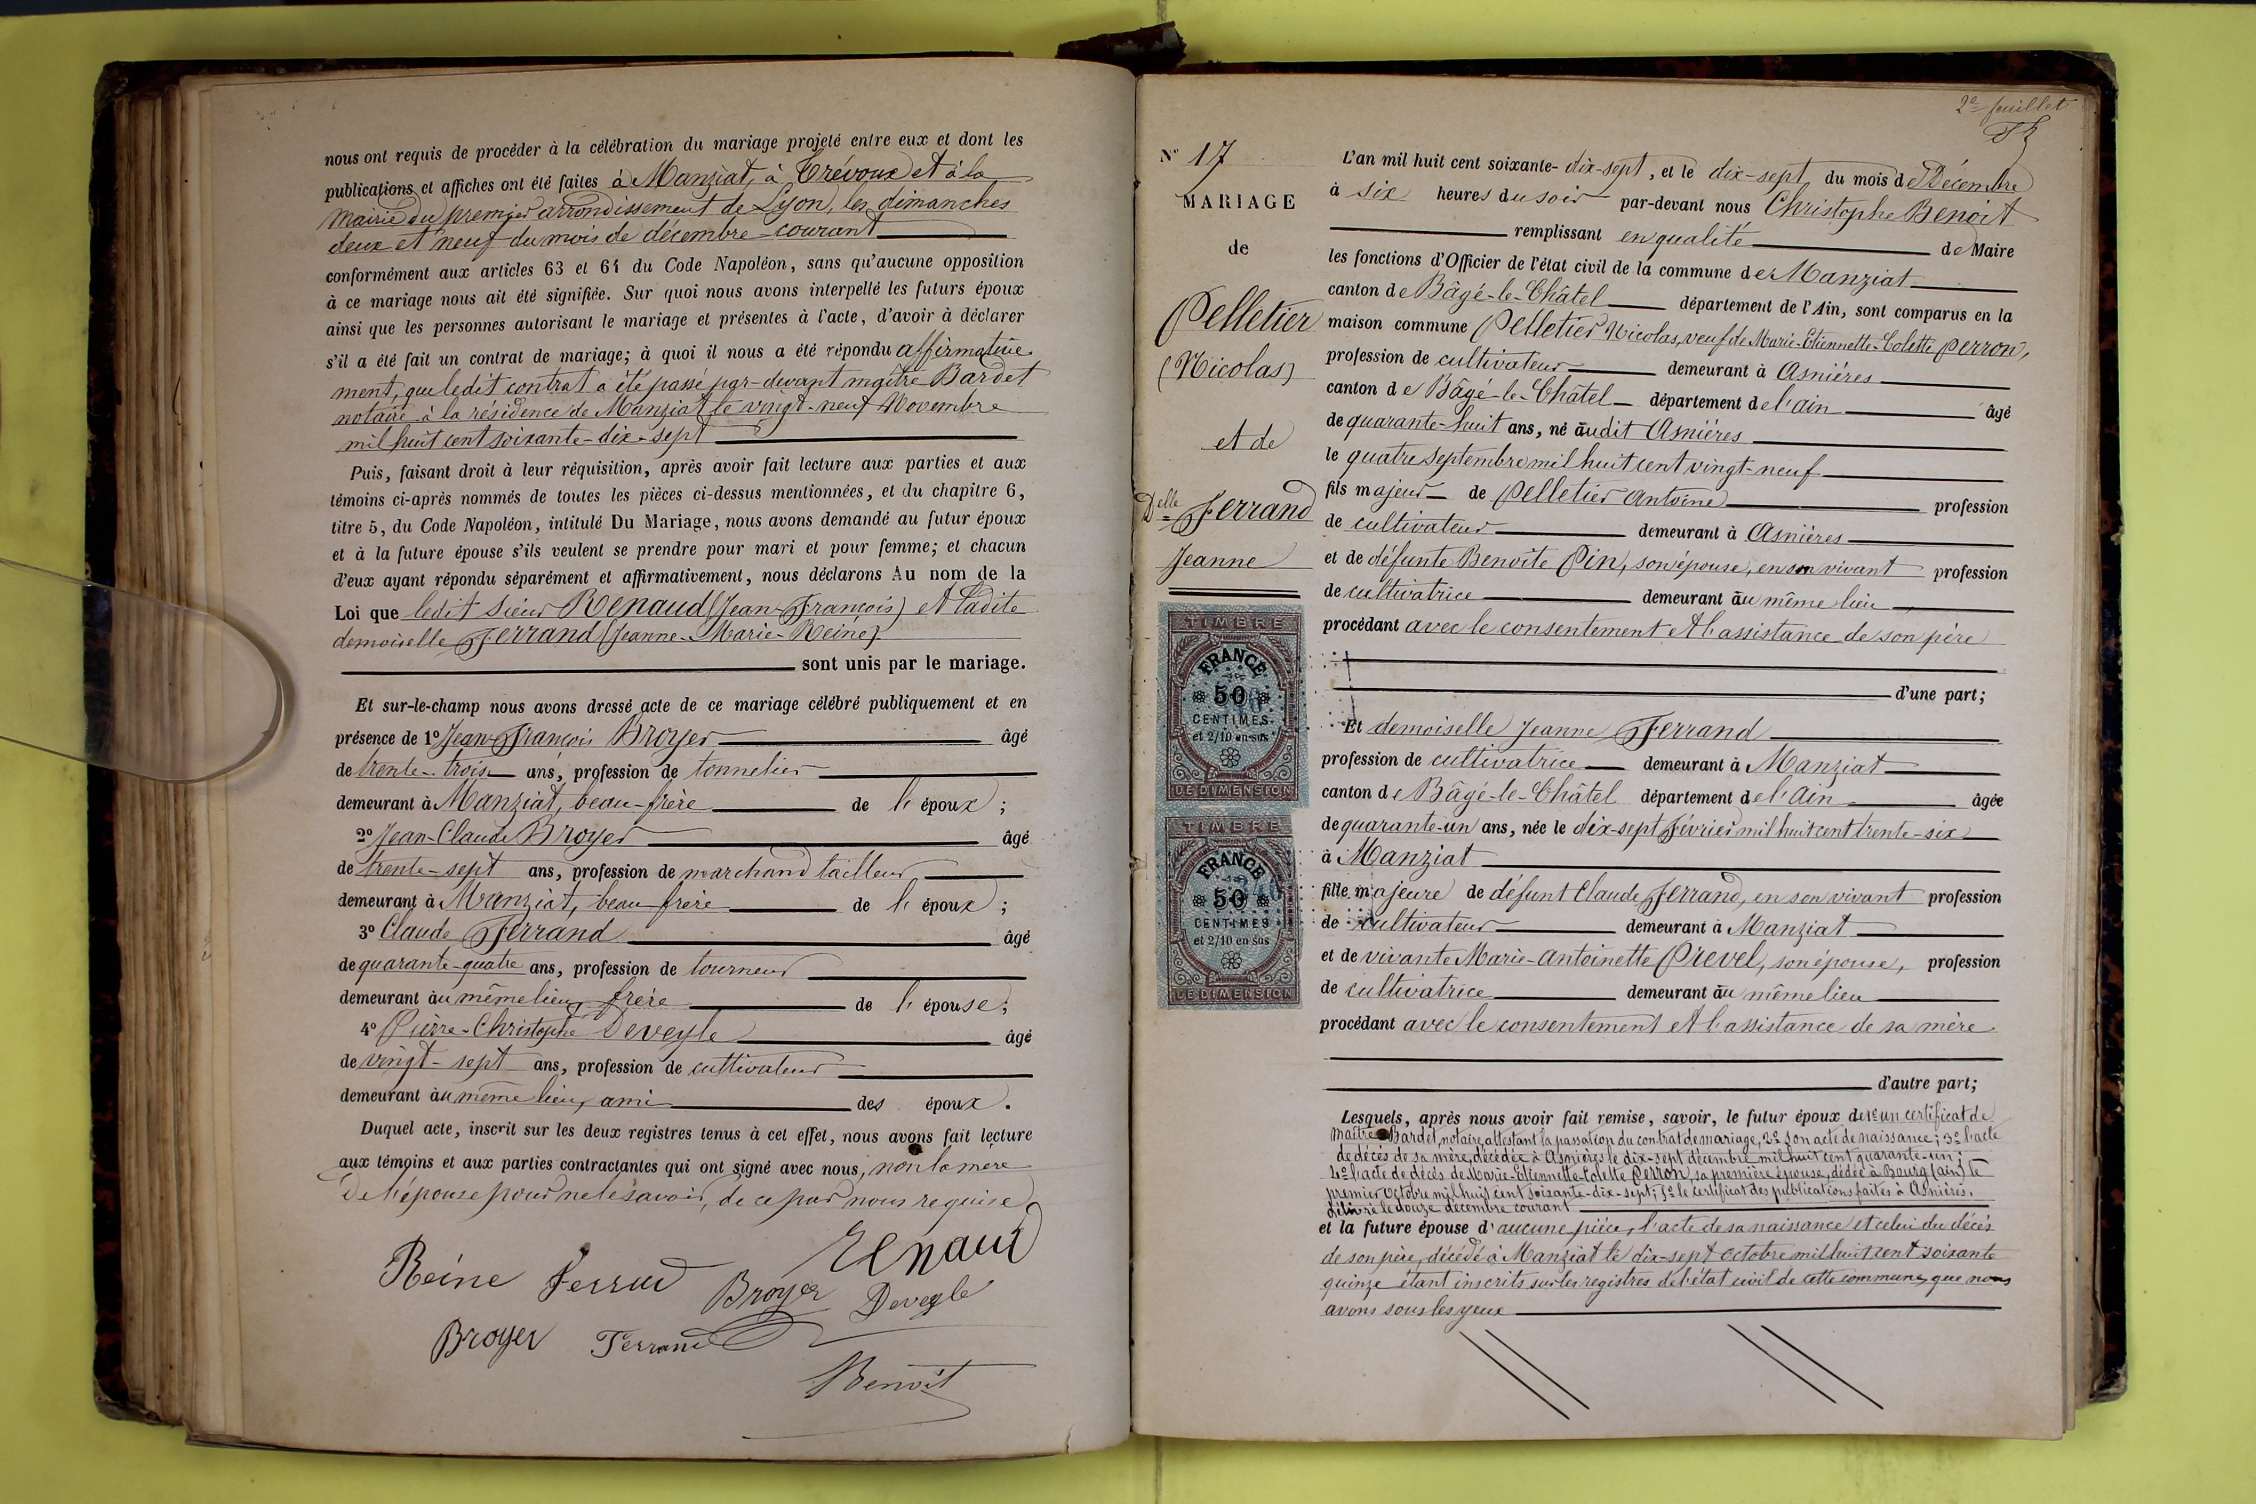 nous ont requis de procéder à la célébration du mariage projeté entre eux et dont les
publications et affiches ont été faites à Manziat, à Trévoux et à la
Mairie du premier arrondissement de Lyon, les dimanches
deux et neuf du mois de décembre courant
conformément aux articles 63 et 64 du Code Napoléon, sans qu'aucune opposition
à ce mariage nous ait été signifiée. Sur quoi nous avons interpellé les futurs époux
ainsi que les personnes autorisant le mariage et présentes à l'acte, d'avoir à déclarer
s'il a été fait un contrat de mariage; à quoi il nous a été répondu affirmative
ment, que ledit contrat a été passé par-devant maître Bardet
notaire à la résidence de Manziat le vingt-neuf Novembre
mil huit cent soixante-dix-sept
Puis, faisant droit à leur réquisition, après avoir fait lecture aux parties et aux
témoins ci-après nommés de toutes les pièces ci-dessus mentionnées, et du chapitre 6,
titre 5, du Code Napoléon, intitulé Du Mariage, nous avons demandé au futur époux
et à la future épouse s'ils veulent se prendre pour mari et pour femme; et chacun
d'eux ayant répondu séparément et affirmativement, nous déclarons Au nom de la
Loi que ledit sieur Renaud (Jean-François) et ladite
demoiselle Ferrand (Jeanne-Marie-Reine)
sont unis par le mariage.
Et sur-le-champ nous avons dressé acte de ce mariage célébré publiquement et en
présence de 1° Jean-François Broyer âgé
de trente-trois ans, profession de tonnelier
demeurant à Manziat, beau-frère de l'époux;
2° Jean-Claude Broyer âgé
de trente-sept ans, profession de marchand tailleur
demeurant à Manziat, beau frère de l'époux;
3° Claude Ferrand âgé
de quarante-quatre ans, profession de tourneur
demeurant au même lieu, frère de l'épouse;
4° Pierre-Christophe Deveyle âgé
de vingt-sept ans, profession de cultivateur
demeurant au même lieu, ami des époux.
Duquel acte, inscrit sur les deux registres tenus à cet effet, nous avons fait lecture
aux témoins et aux parties contractantes qui ont signé avec nous, non la mère
de l'épouse pour ne le savoir, de ce par nous requise
Renaud
Reine Ferrand Broyer Deveyle
Broyer Ferrand
Benoit
2e feuillet
N° 17
MARIAGE
de
Pelletier
(Nicolas)
et de
Delle Ferrand
Jeanne
TIMBRE
FRANCE
50
CENTIMES
et 2/10 en sus
DE DIMENSION
TIMBRE
FRANCE
50
CENTIMES
et 2/10 en sus
DE DIMENSION
L'an mil huit cent soixante-dix-sept, et le dix-sept du mois de Décembre
à six heures du soir par-devant nous Christophe Benoit
remplissant en qualité de Maire
les fonctions d'Officier de l'état civil de la commune de Manziat
canton de Bâgé-le-Châtel département de l'Ain, sont comparus en la
maison commune Pelletier Nicolas, veuf de Marie-Etiennette-Colette Perron,
profession de cultivateur demeurant à Asnières
canton de Bâgé-le-Châtel département de l'ain âgé
de quarante-huit ans, né audit Asnières
le quatre Septembre mil huit cent vingt-neuf
fils majeur de Pelletier Antoine profession
de cultivateur demeurant à Asnières
et de défunte Benoite Pin, son épouse, en son vivant profession
de cultivatrice demeurant au même lieu
procédant avec le consentement et l'assistance de son père
d'une part;
Et demoiselle Jeanne Ferrand
profession de cultivatrice demeurant à Manziat
canton de Bâgé-le-Châtel département de l'Ain âgée
de quarante-un ans, née le dix-sept Février mil huit cent trente-six
à Manziat
fille majeure de défunt Claude Ferrand, en son vivant profession
de cultivateur demeurant à Manziat
et de vivante Marie-Antoinette Prevel, son épouse, profession
de cultivatrice demeurant au même lieu
procédant avec le consentement et l'assistance de sa mère
d'autre part;
Lesquels, après nous avoir fait remise, savoir, le futur époux de 1° un certificat de
Maître Bardet, notaire attestant la passation du contrat de mariage, 2° son acte de naissance; 3° l'acte
de décès de sa mère, décédée à Asnières le dix-sept décembre mil huit cent quarante-un;
4° l'acte de décès de Marie-Etiennette-Colette Perron, sa première épouse, dédée à Bourg (ain) le
premier Octobre mil huit cent soixante-dix-sept; 5° le certificat des publications faites à Asnières,
délivré le douze décembre courant
et la future épouse d'aucune pièce, l'acte de sa naissance et celui du décès
de son père, décédé à Manziat le dix-sept Octobre mil huit cent soixante
quinze étant inscrits sur les registres de l'état civil de cette commune, que nous
avons sous les yeux